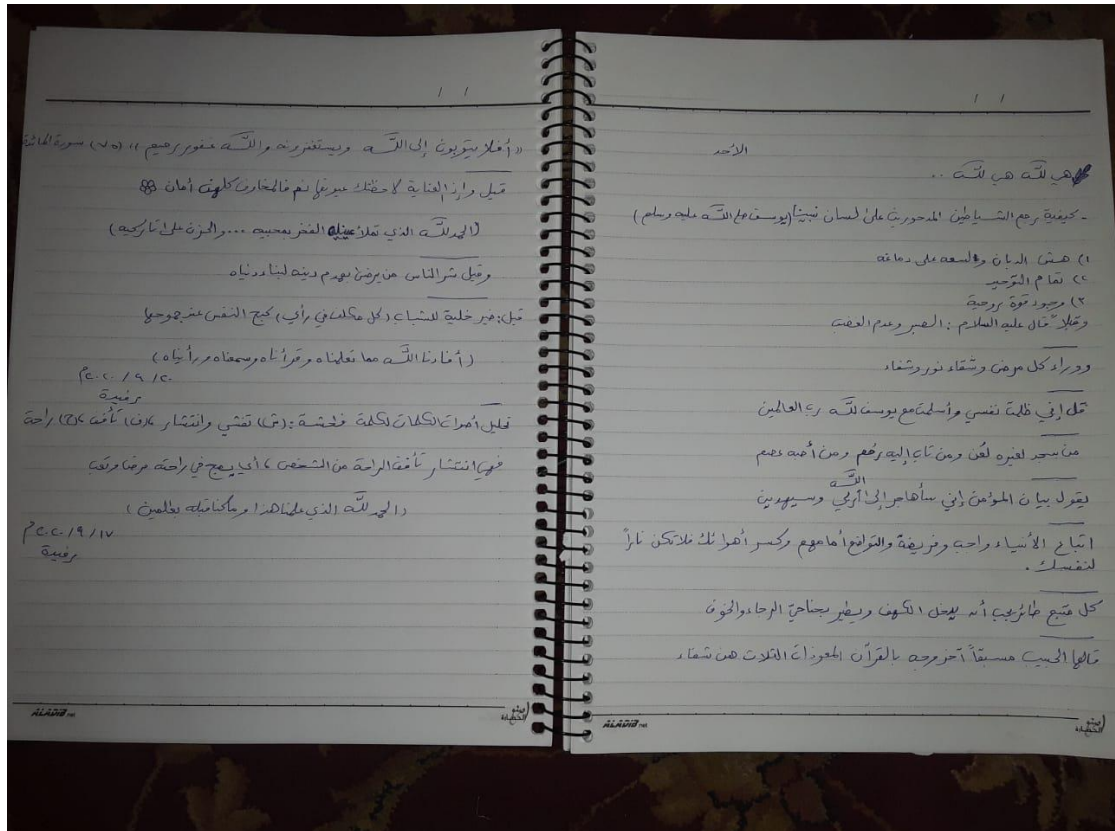 / /
الأحد
هي للَّه هي للَّه ..
- كيفية رجم الشياطين المدحورين على لسان نبينا (يوسف صلى اللَّه عليه وسلم)
١) هش الدبان ولسعه على دماغه
٢) تمام التوحيد
٣) وجود قوة روحية
وقبلاً قال عليه السلام : الصبر وعدم الغضب
ووراء كل مرض وشقاء نور وشفاء
قل إني ظلمت نفسي وأسلمت مع يوسف للَّه رب العالمين
من سجد لغيره لعن ومن تاب إليه رحم ومن أحبه عصم
يقول بيان المؤمن إني سأهاجر إلى اللَّه ربي وسيهدين
اتباع الأنبياء واجب وفريضة والتواضع أمامهم وكسر أهوائك فلا تكن ناراً
لنفسك .
كل متبع طائر يجب أن يدخل الكهف ويطير بجناحيّ الرجاء والخوف
قالها الحبيب مسبقاً آخر وجه بالقرآن المعوذات الثلاث هن شفاء
ALADIB
/ /
(( أفلا يتوبون إلى اللَّه ويستغفرونه واللَّه غفور رحيم )) (٧٥) سورة المائدة
قيل وإذا العناية لاحظتك عيونها نم فالمخاوف كلهن أمان
(الحمدللَّه الذي تملأ عينيه الفخر بمحبيه ... والحزن على تاركيه)
وقيل شر الناس من يرضى بهدم دينه لبناء دنياه
قيل : خير خلية للشباب (كل مكلف في رأيي) كبح النفس عند جموحها
(أفادنا اللَّه مما تعلمناه وقرأناه وسمعناه ورأيناه)
٢٠ / ٩ / ٢٠٢٠م
رفيدة
تحليل أصوات الكلمات لكلمة فحشة : (ش) تفشي وانتشار ، (ف) تأفف ، (ح) راحة
فهي انتشار تأفف الراحة من الشخص ، أي يصبح في راحته مرض وتعب
(الحمد للَّه الذي علمنا هذا وما كنا قبله بعالمين)
١٧ / ٩ / ٢٠٢٠م
رفيدة
ALADIB